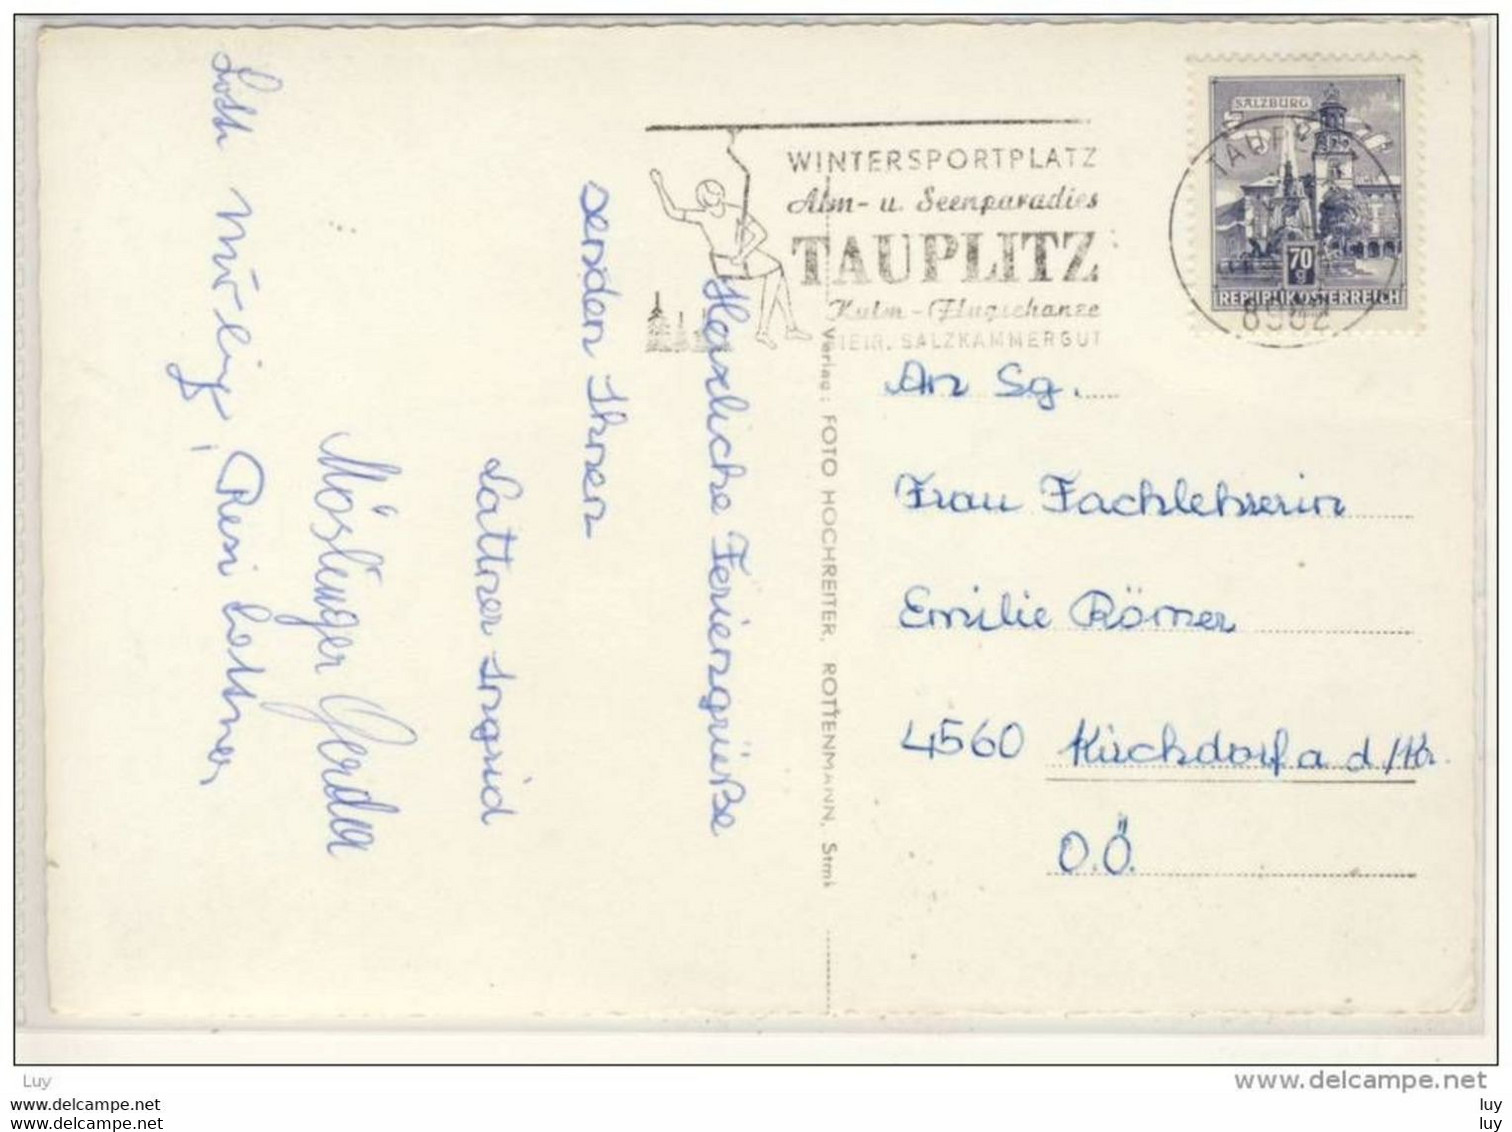 SALZBURG
70
g
REPUBLIK ÖSTERREICH
8982
WINTERSPORTPLATZ
Alm- u. Seenparadies
TAUPLITZ
Kulm-Flugschanze
STEIR. SALZKAMMERGUT
Verlag: FOTO HOCHREITER, ROTTENMANN, Strnk
Herzliche Feriengrüße
senden Ihnen
Lattner Ingrid
Möslinger Gerda
Resi Lattner
An Sg.
Frau Fachlehrerin
Emilie Römer
4560 Kirchdorf a d/Kr.
O.Ö.
Luy
www.delcampe.net
www.delcampe.net luy
www.delcampe.net luy